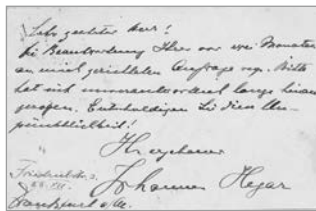 Sehr geehrter Herr!
Die Beantwortung Ihrer vor zwei Monaten
an mich gerichteten Anfrage resp. Bitte
hat sich unverantwortend lange hinaus
gezogen. Entschuldigen Sie diese Un-
pünktlichkeit!
Johannes Hegar
Frankfurt a/M.